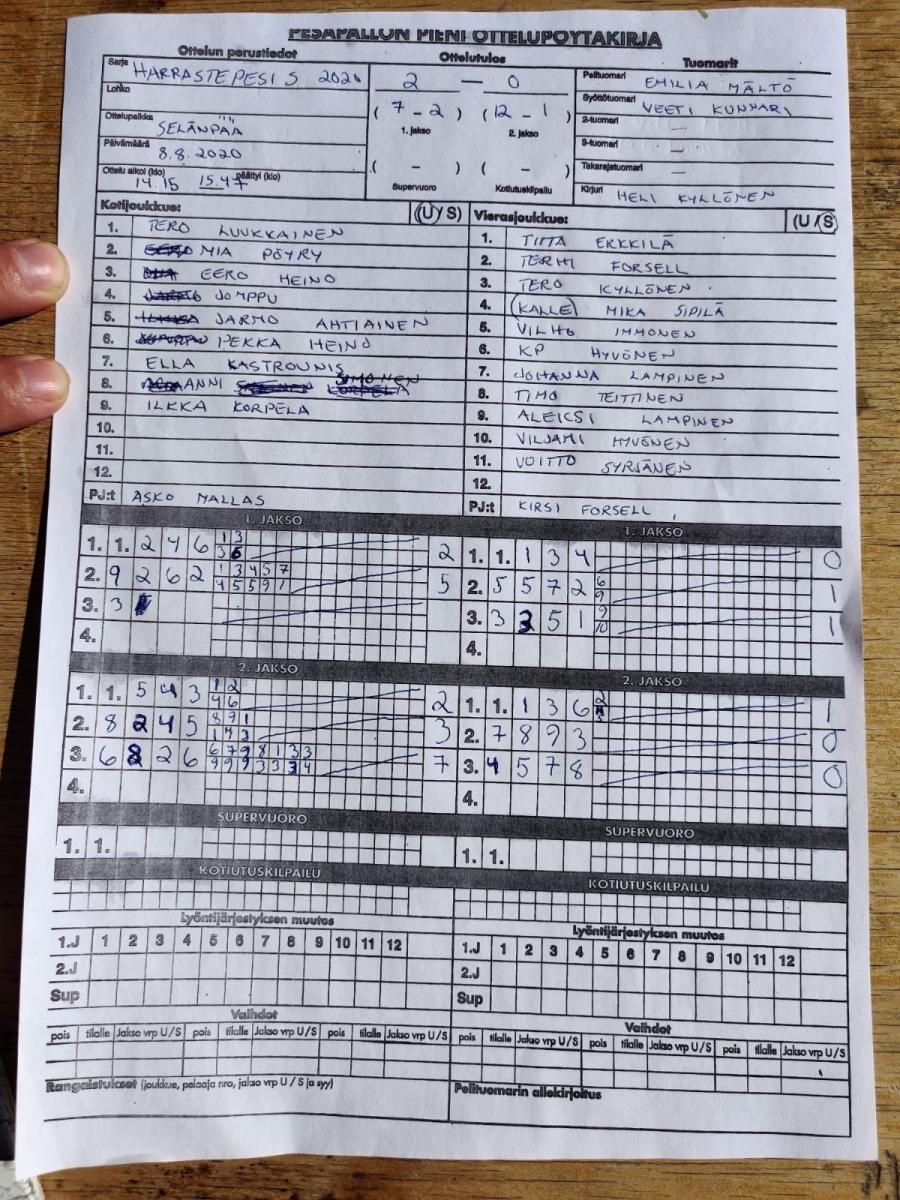 PESÄPALLON PIENI OTTELUPÖYTÄKIRJA
Ottelun perustiedot
Sarja HARRASTEPESIS 2020
Lohko
Ottelupaikka SELÄNPÄÄ
Päivämäärä 8.8.2020
Ottelu alkoi (klo) 14.15 päättyi (klo) 15.47
Ottelutulos
2 — 0
(7 - 2) (12 - 1)
1. jakso 2. jakso
( - ) ( - )
Supervuoro Kotiutuskilpailu
Tuomarit
Pelituomari EMILIA MÄLTÖ
Syöttötuomari VEETI KUNNARI
2-tuomari —
3-tuomari —
Takarajatuomari —
Kirjuri HELI KYLLÖNEN
Kotijoukkue: (U/S)
1. TERO LUUKKAINEN
2. MIA PÖYRY
3. EERO HEINO
4. JOMPPU
5. JARMO AHTIAINEN
6. PEKKA HEINO
7. ELLA KASTROUNIS
8. ANNI SIMONEN
9. ILKKA KORPELA
10.
11.
12.
PJ:t ASKO MALLAS
Vierasjoukkue: (U/S)
1. TIITA ERKKILÄ
2. TERHI FORSELL
3. TERO KYLLÖNEN
4. (KALLE) MIKA SIPILÄ
5. VILHO IMMONEN
6. KP HYVÖNEN
7. JOHANNA LAMPINEN
8. TIMO TEITTINEN
9. ALEKSI LAMPINEN
10. VILJAMI HYVÖNEN
11. VOITTO SYRJÄNEN
12.
PJ:t KIRSI FORSELL
1. JAKSO
1. 1. 2 4 6 1 3 2
3 6
2. 9 2 6 2 1 3 4 5 7 5
4 5 5 9 1
3. 3
4.
1. JAKSO
1. 1. 1 3 4 0
2. 5 5 7 2 6 1
9
3. 3 3 5 1 9 1
10
4.
2. JAKSO
1. 1. 5 4 3 1 2 2
4 6
2. 8 2 4 5 8 9 1 3
1 4 3
3. 6 8 2 6 6 7 9 8 1 3 3 7
9 9 9 3 3 3 4
4.
2. JAKSO
1. 1. 1 3 6 2 1
2. 7 8 9 3 0
3. 4 5 7 8 0
4.
SUPERVUORO
1. 1.
SUPERVUORO
1. 1.
KOTIUTUSKILPAILU
KOTIUTUSKILPAILU
Lyöntijärjestyksen muutos
1.J 1 2 3 4 5 6 7 8 9 10 11 12
2.J
Sup
Lyöntijärjestyksen muutos
1.J 1 2 3 4 5 6 7 8 9 10 11 12
2.J
Sup
Vaihdot
pois tilalle Jakso vrp U/S pois tilalle Jakso vrp U/S pois tilalle Jakso vrp U/S
Vaihdot
pois tilalle Jakso vrp U/S pois tilalle Jakso vrp U/S pois tilalle Jakso vrp U/S
Rangaistukset (joukkue, pelaaja nro, jakso vrp U / S ja syy)
Pelituomarin allekirjoitus